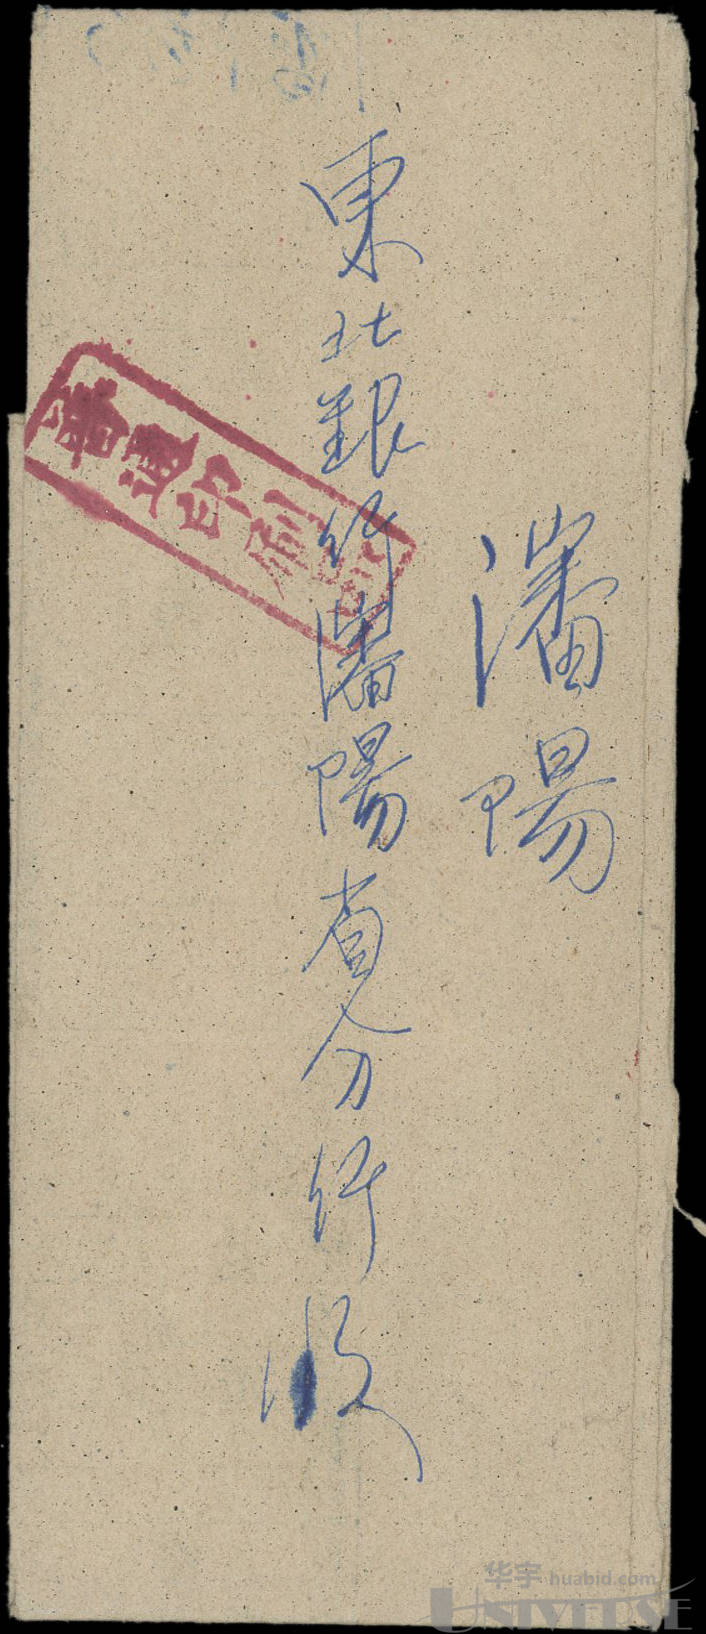 瀋陽
東北銀行瀋陽省分行收
普通印刷
华宇 huabid.com
UNIVERSE